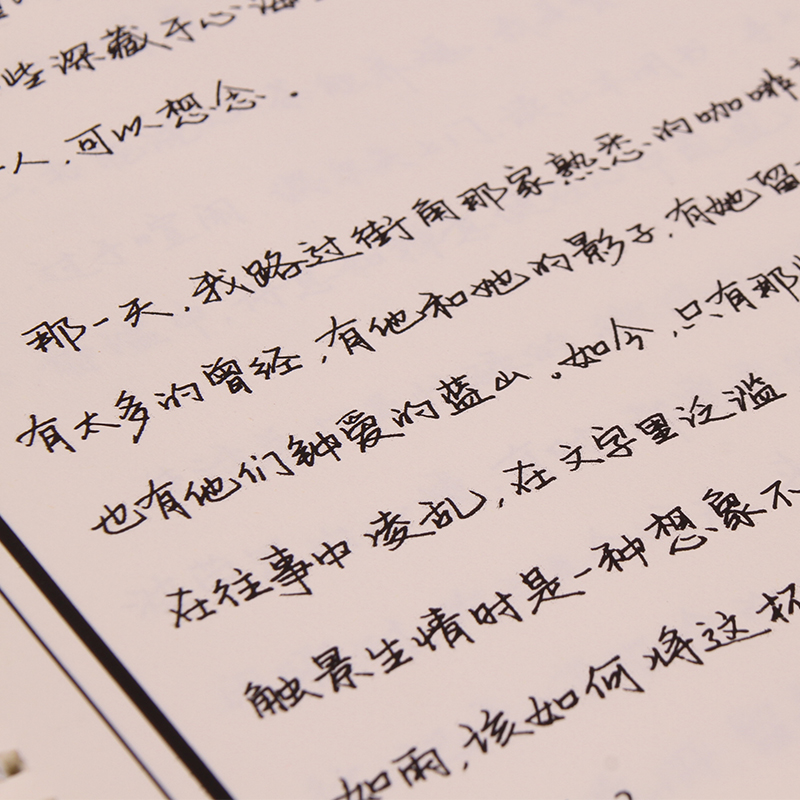 些深藏于心海
人,可以想念.
那一天,我路过街角那家熟悉的咖啡
有太多的曾经,有他和她的影子,有她留
也有他们钟爱的蓝山。如今,只有那
在往事中凌乱,在文字里泛滥
触景生情时是一种想象不
如雨,该如何将这杯